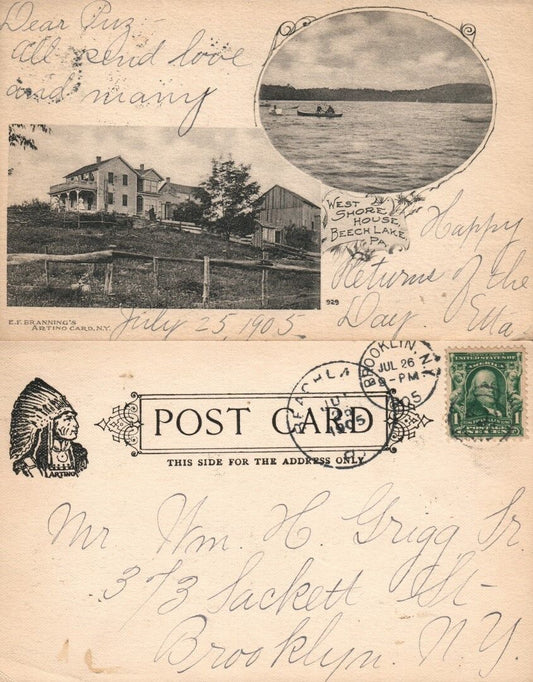 Dear Puz -
All send love
and many
Happy
Returns of the
Day. Ella
July 25 1905
WEST
SHORE
HOUSE
BEECH LAKE
PA.
929
E.F. BRANNING'S
ARTINO CARD, N.Y.
BROOKLYN, N.Y.
JUL 26
8-PM
05
BEACH LA
1905
UNITED STATES OF AMERICA
1
ARTINO
POST CARD
THIS SIDE FOR THE ADDRESS ONLY
Mr. Wm. H. Grigg Sr.
373 Sackett St-
Brooklyn N.Y.